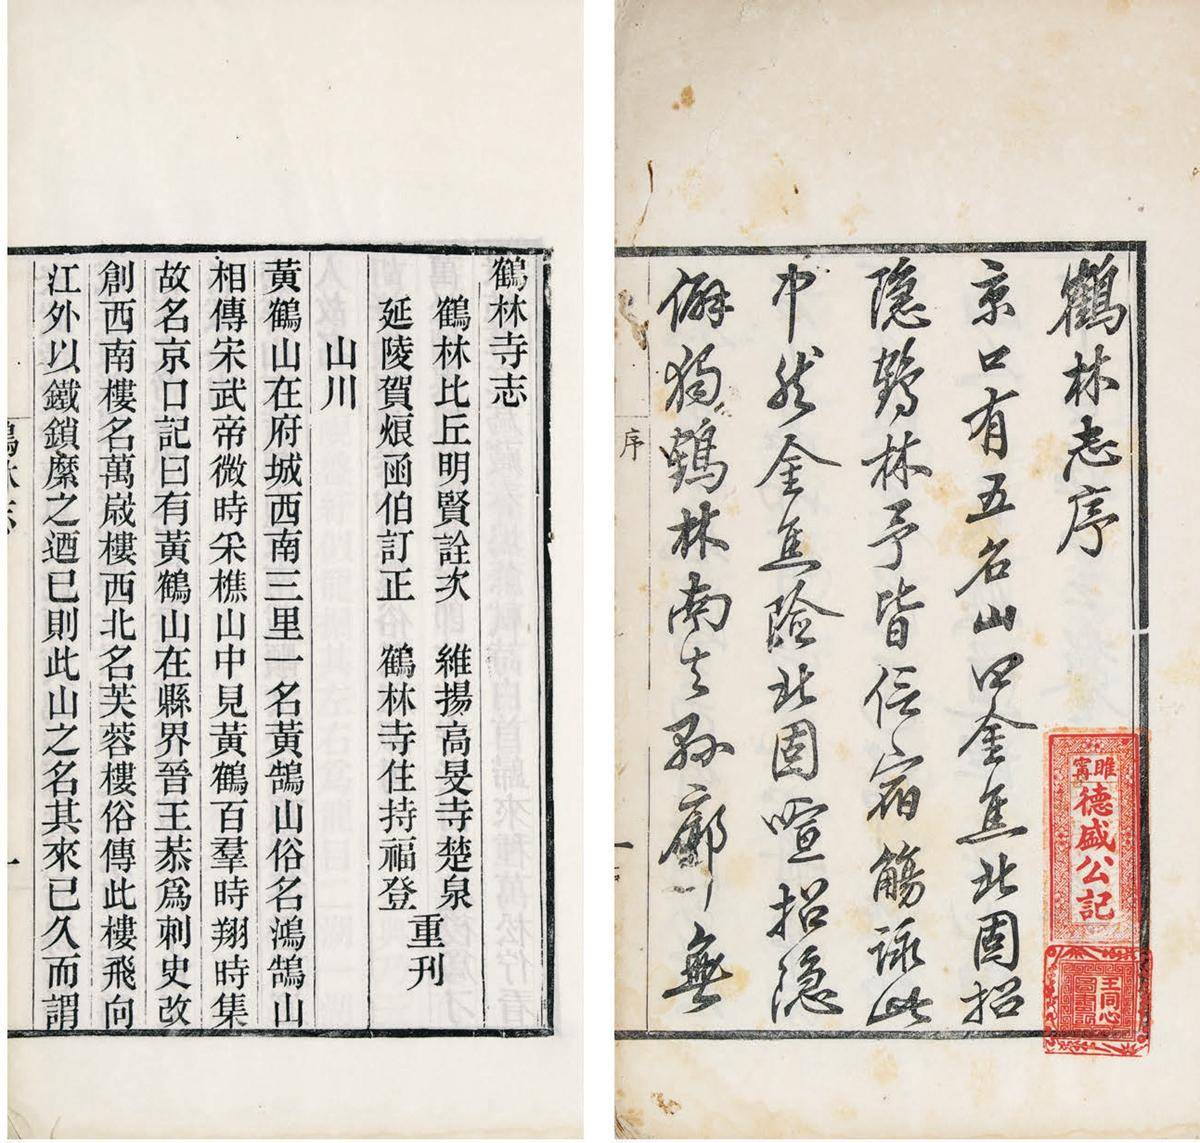 鶴林志序
京口有五名山曰金焦北固招
隱鶴林予皆信宿觴詠此
中然金焦險北固喧招隱
僻獨鶴林南去廓無
序
一
睢甯
德盛公記
王同心
鶴林寺志
鶴林比丘明賢詮次 維揚高旻寺楚泉
延陵賀烺函伯訂正 鶴林寺住持福登
重刊
山川
黃鶴山在府城西南三里一名黃鵠山俗名鴻鵠山
相傳宋武帝微時采樵山中見黃鶴百羣時翔時集
故名京口記曰有黃鶴山在縣界晉王恭爲刺史改
創西南樓名萬歲樓西北名芙蓉樓俗傳此樓飛向
江外以鐵鎖縻之迺已則此山之名其來已久而謂
鶴林志
一